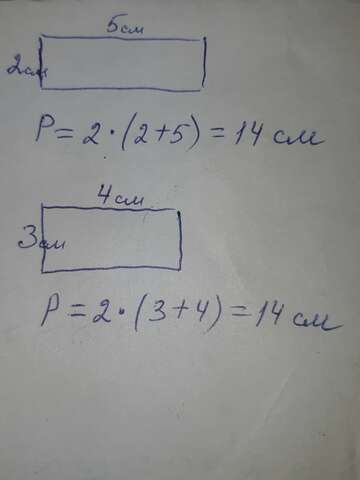 5см
2см
P = 2 · (2+5) = 14 см
4см
3см
P = 2 · (3+4) = 14 см